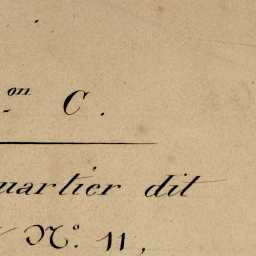 on C.
uartier dit
N.º 11,